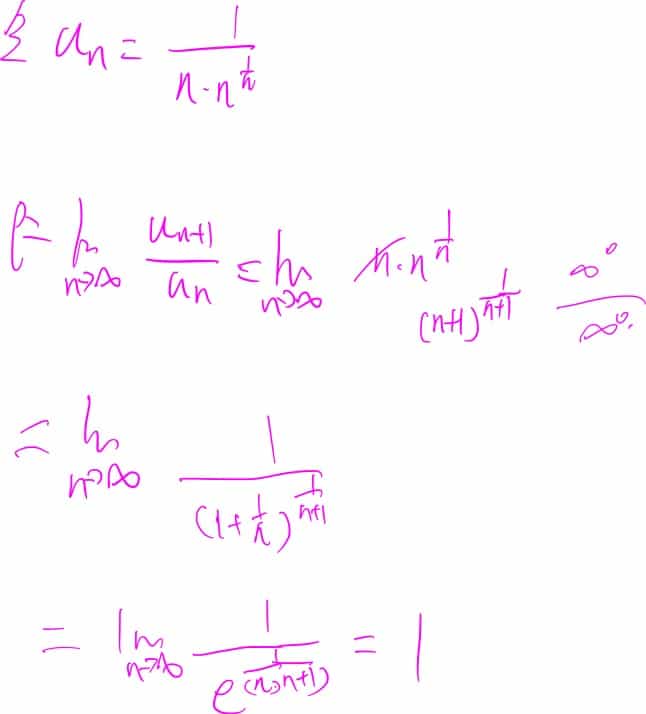 Σ a_n = 1/(n·n^(1/n))
ρ = lim_(n→∞) a_(n+1)/a_n = lim_(n→∞) n·n^(1/n) / (n+1)^(1/(n+1)) ∞^0/∞^0.
= lim_(n→∞) 1/(1+1/n)^(1/(n+1))
= lim_(n→∞) 1/e^(1/(n(n+1))) = 1